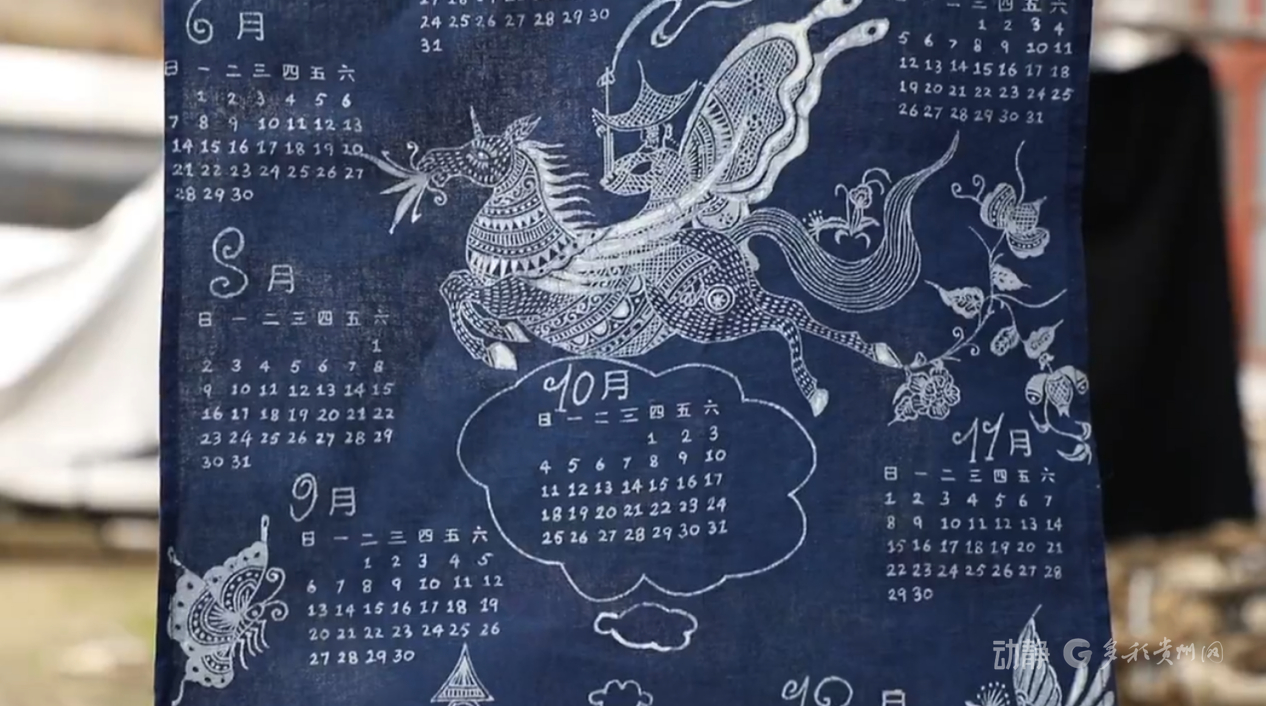 6月
日 一 二 三 四 五 六
1 2 3 4 5 6
7 8 9 10 11 12 13
14 15 16 17 18 19 20
21 22 23 24 25 26 27
28 29 30
24 25 26 27 28 29 30
31
三 四 五 六
1 2 3 4
5 6 7 8 9 10 11
12 13 14 15 16 17 18
19 20 21 22 23 24 25
26 27 28 29 30 31
8月
日 一 二 三 四 五 六
1
2 3 4 5 6 7 8
9 10 11 12 13 14 15
16 17 18 19 20 21 22
23 24 25 26 27 28 29
30 31
10月
日 一 二 三 四 五 六
1 2 3
4 5 6 7 8 9 10
11 12 13 14 15 16 17
18 19 20 21 22 23 24
25 26 27 28 29 30 31
11月
日 一 二 三 四 五 六
1 2 3 4 5 6 7
8 9 10 11 12 13 14
15 16 17 18 19 20 21
22 23 24 25 26 27 28
29 30
9月
日 一 二 三 四 五 六
1 2 3 4 5
6 7 8 9 10 11 12
13 14 15 16 17 18 19
20 21 22 23 24 25 26
27 28 29 30
12月
动静 多彩贵州网